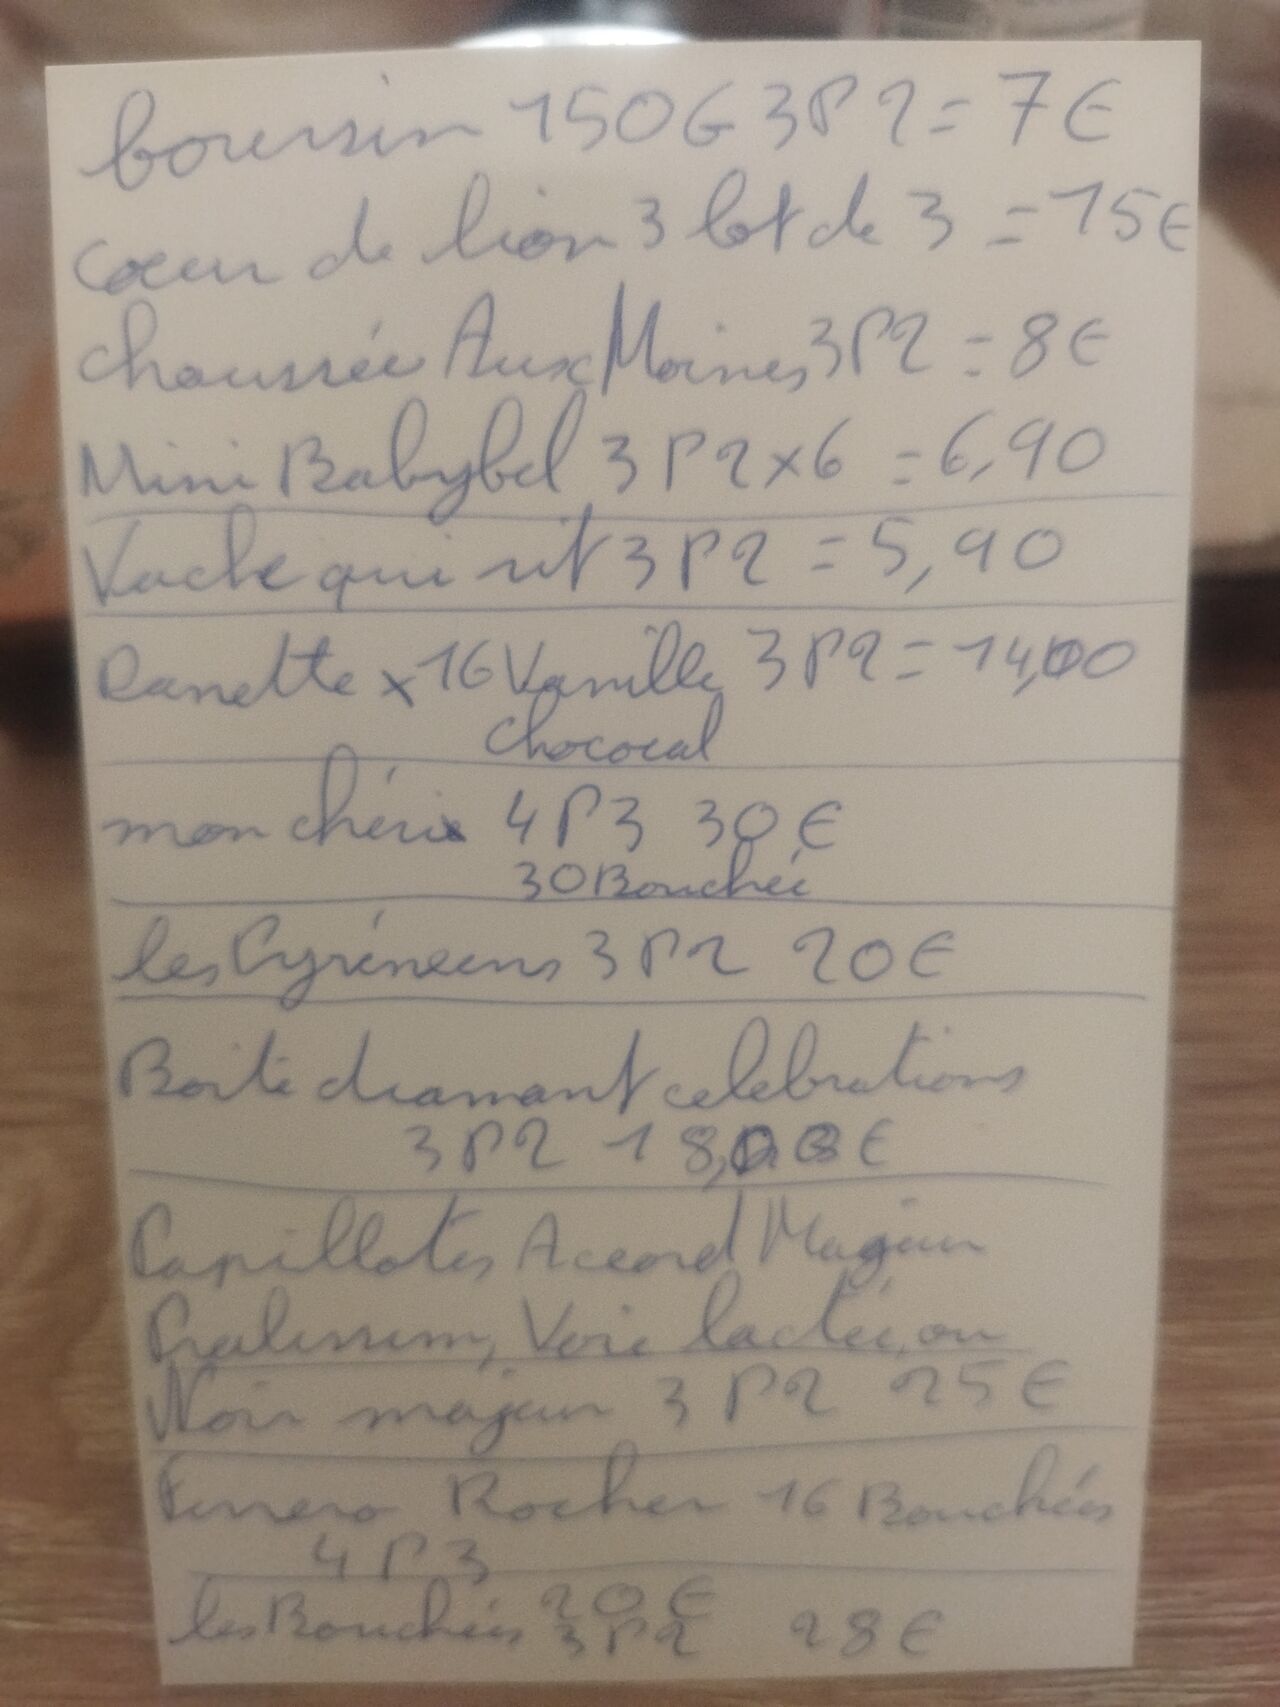 boursin 150G 3P2 = 7€
cœur de lion 3 lot de 3 = 15€
chaussée Aux Moines 3P2 = 8€
Mini Babybel 3P2x6 = 6,90
Vache qui rit 3P2 = 5,90
Danette x16 Vanille 3P2 = 14,00
Chococal
mon chéri 4P3 30€
30 Bouchée
les Pyrénéens 3P2 20€
Boite diamant celebrations
3P2 18,00€
Papillotes Accord Majeur
Pralissim, Voie lactée, ou
Noir majeur 3P2 25€
Ferrero Rocher 16 Bouchées
4P3
20€
les Bouchées 3P2 28€